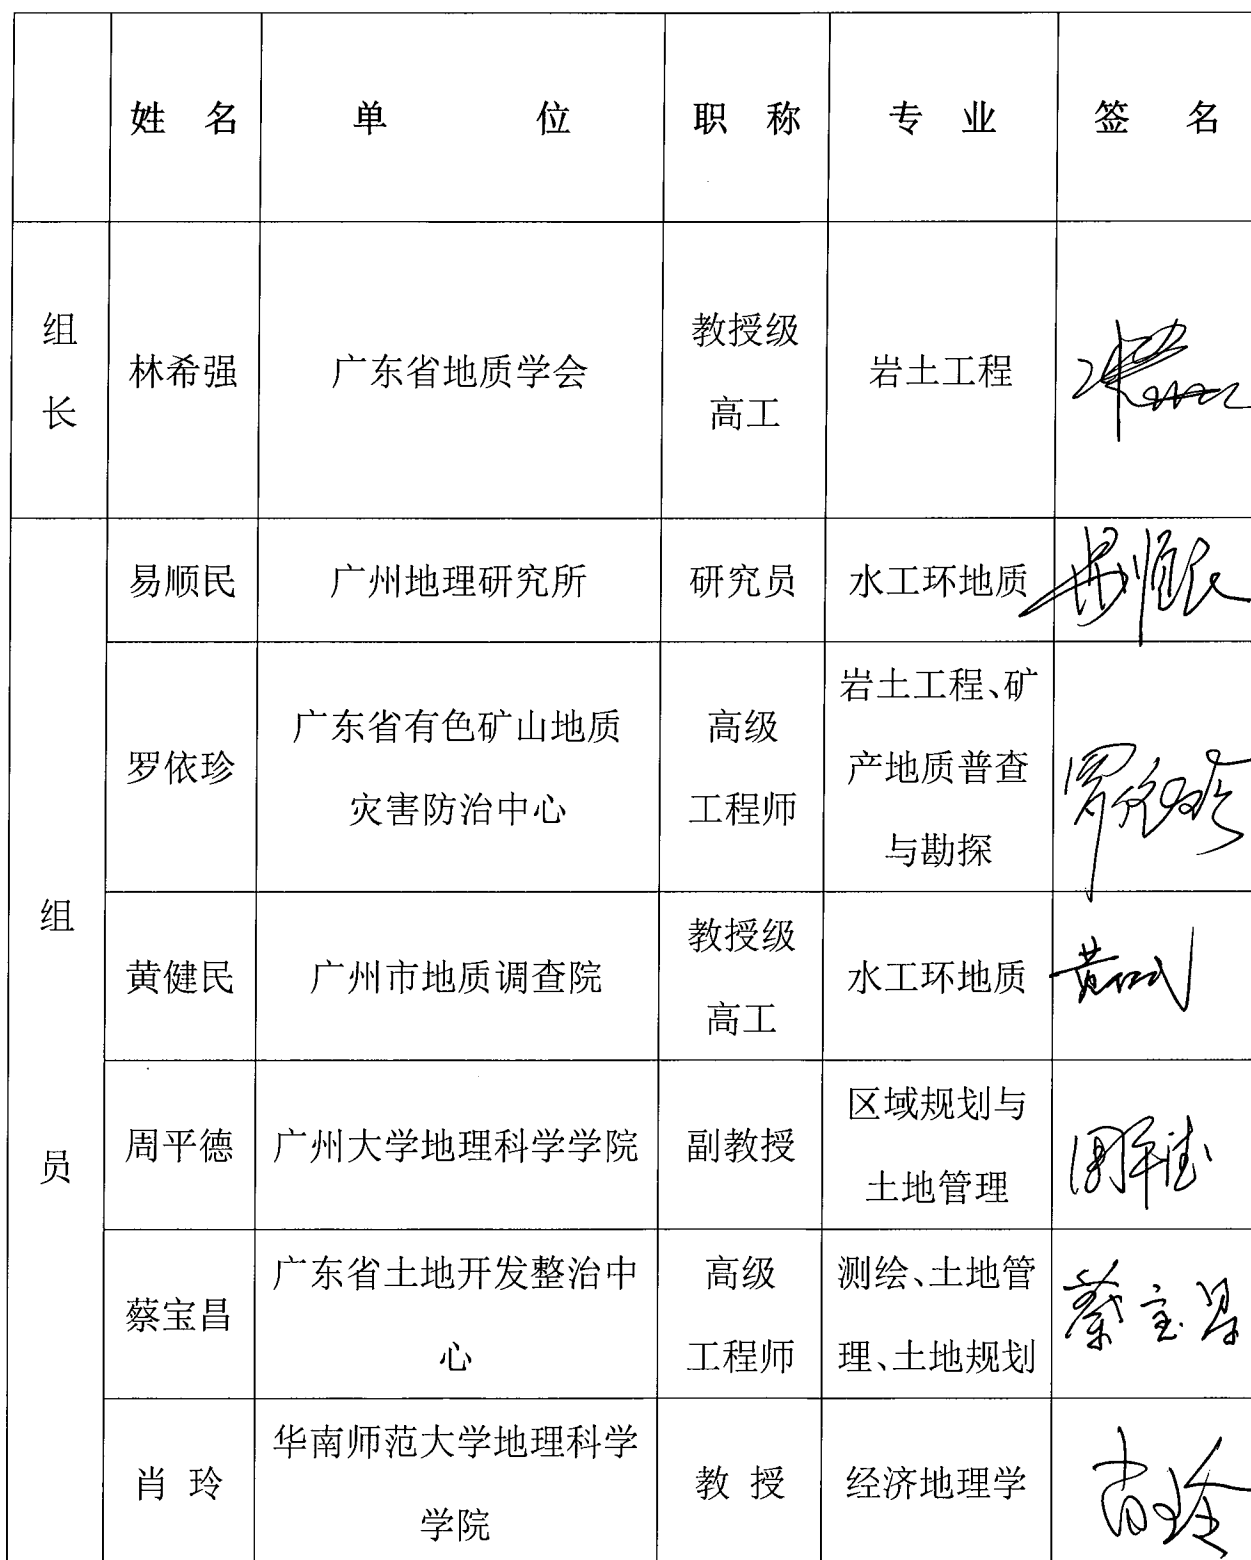 姓 名 单 位 职 称 专 业 签 名
组
长
林希强
广东省地质学会
教授级
高工
岩土工程
组
员
易顺民
广州地理研究所
研究员
水工环地质
易顺民
罗依珍
广东省有色矿山地质
灾害防治中心
高级
工程师
岩土工程、矿
产地质普查
与勘探
罗依珍
黄健民
广州市地质调查院
教授级
高工
水工环地质
黄健民
周平德
广州大学地理科学学院
副教授
区域规划与
土地管理
周平德
蔡宝昌
广东省土地开发整治中
心
高级
工程师
测绘、土地管
理、土地规划
蔡宝昌
肖 玲
华南师范大学地理科学
学院
教 授
经济地理学
肖玲